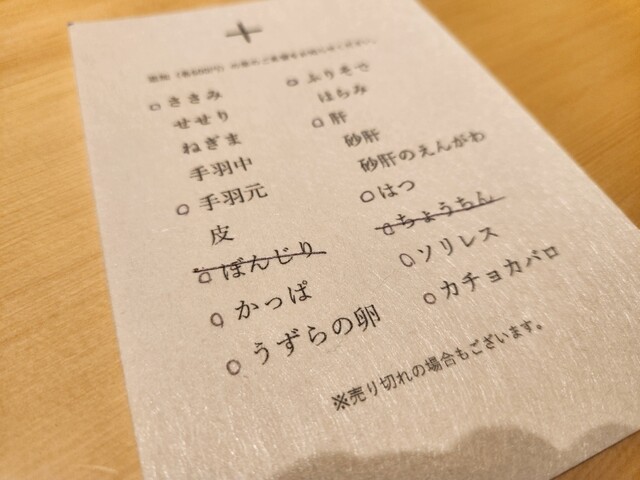 ご希望をお知らせください。
ささみ
せせり
ねぎま
手羽中
手羽元
皮
ぼんじり
かっぱ
うずらの卵
ふりそで
はらみ
肝
砂肝
砂肝のえんがわ
はつ
ちょうちん
ソリレス
カチョカバロ
※売り切れの場合もございます。